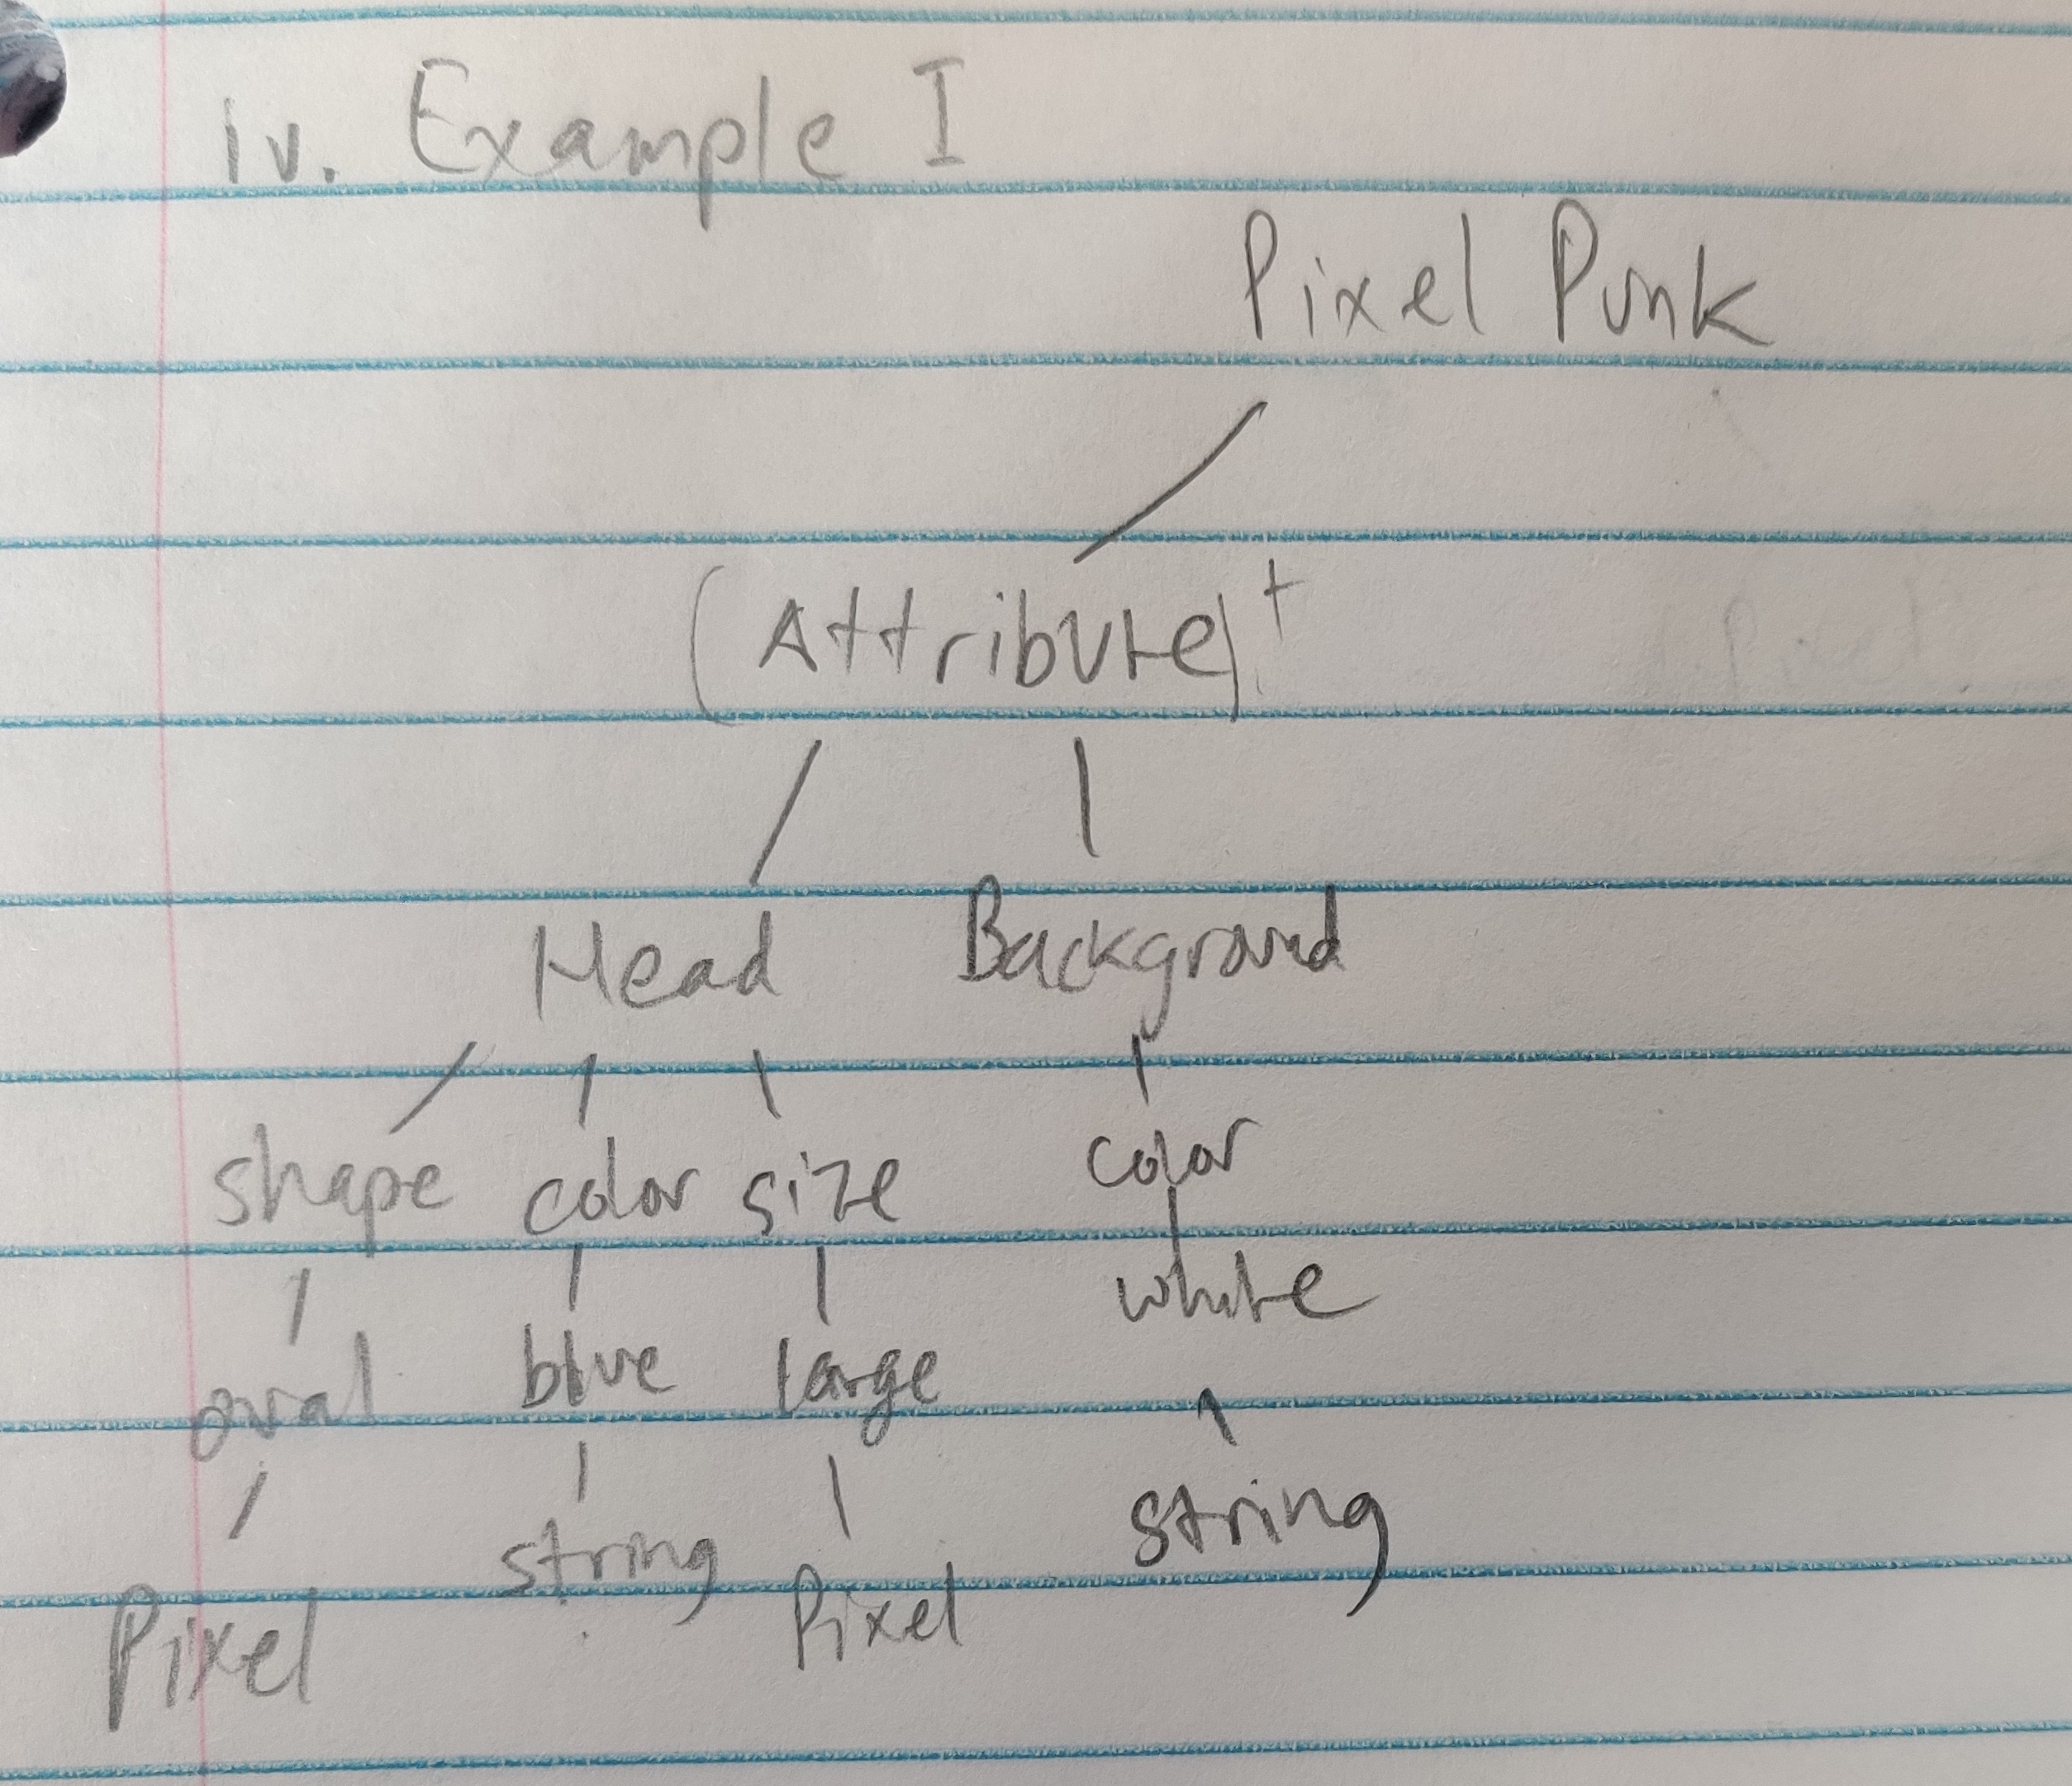 iv. Example I
Pixel Punk
(Attribute)+
Head Background
shape color size color
white
oval blue large
string
string
Pixel Pixel